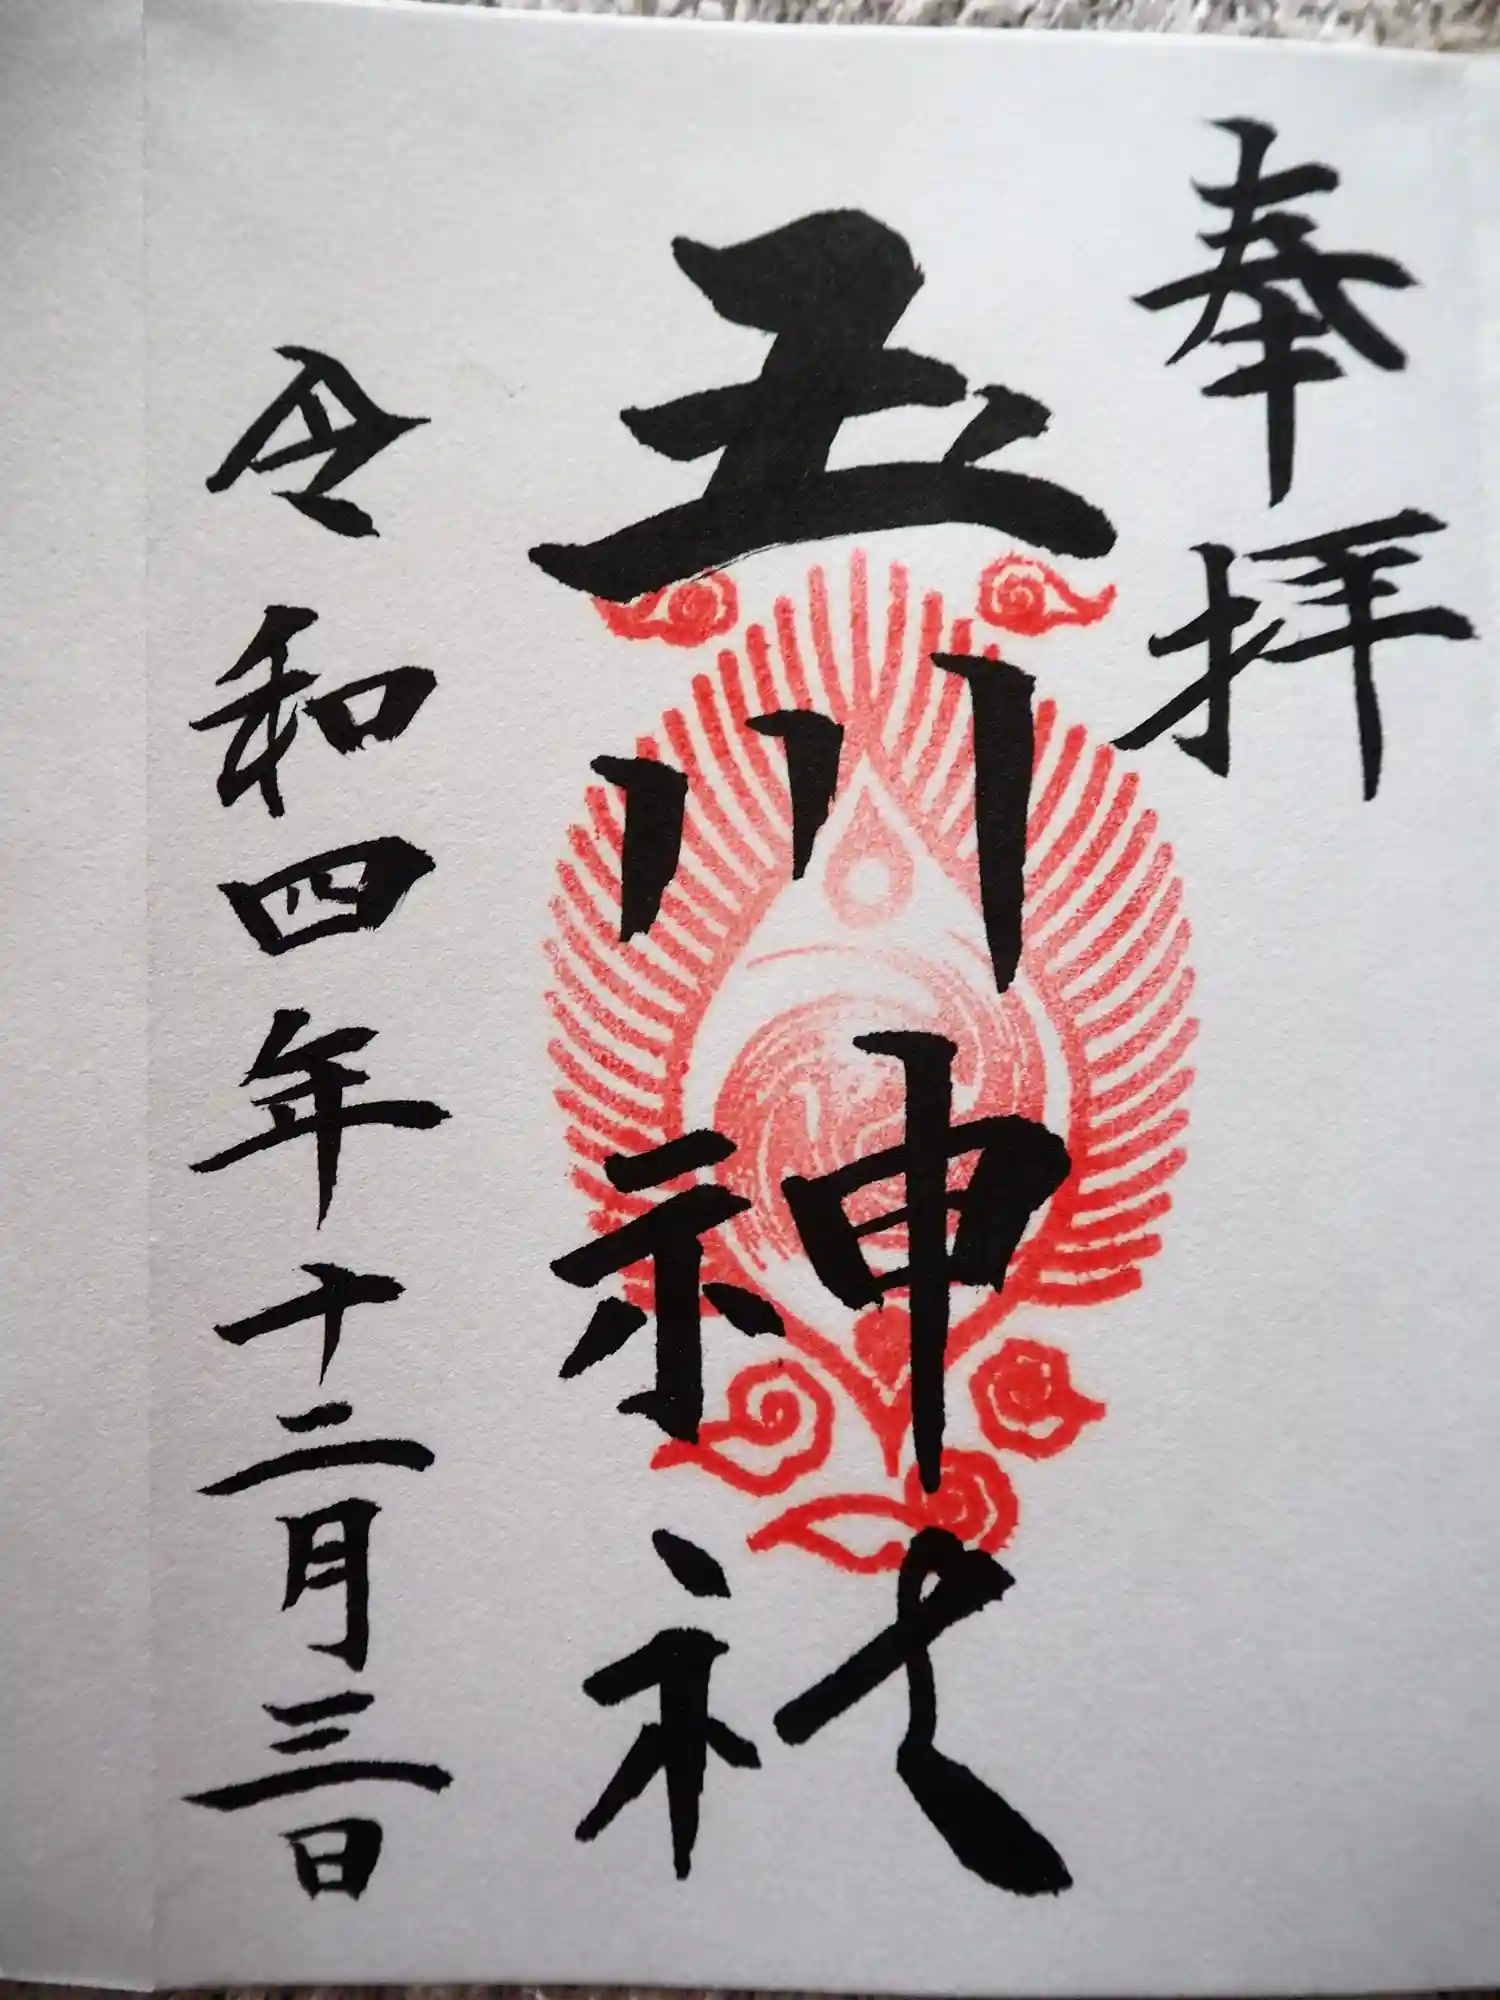 奉拝
玉川神社
令和四年十二月三日